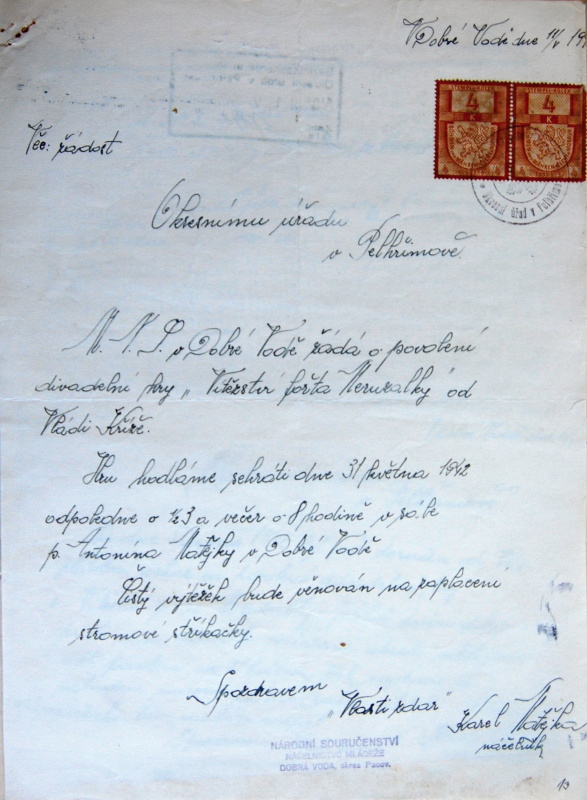 V Dobré Vodě dne 11/V 19
4 K
4 K
Okresní úřad v Pelhřimově
Věc: žádost
Okresnímu úřadu
v Pelhřimově.
M. N. S. v Dobré Vodě žádá o povolení
divadelní hry „Vítězství fořta Meruzalky" od
Vládi Kříže.
Hru hodláme sehráti dne 31 května 1942
odpoledne o ½3 a večer o 8 hodině v sále
p. Antonína Matějky v Dobré Vodě
Čistý výtěžek bude věnován na zaplacení
stromové stříkačky.
S pozdravem
„Vlasti zdar"
Karel Matějka
náčelník
NÁRODNÍ SOURUČENSTVÍ
NÁČELNICTVO MLÁDEŽE
DOBRÁ VODA, okres Pacov.